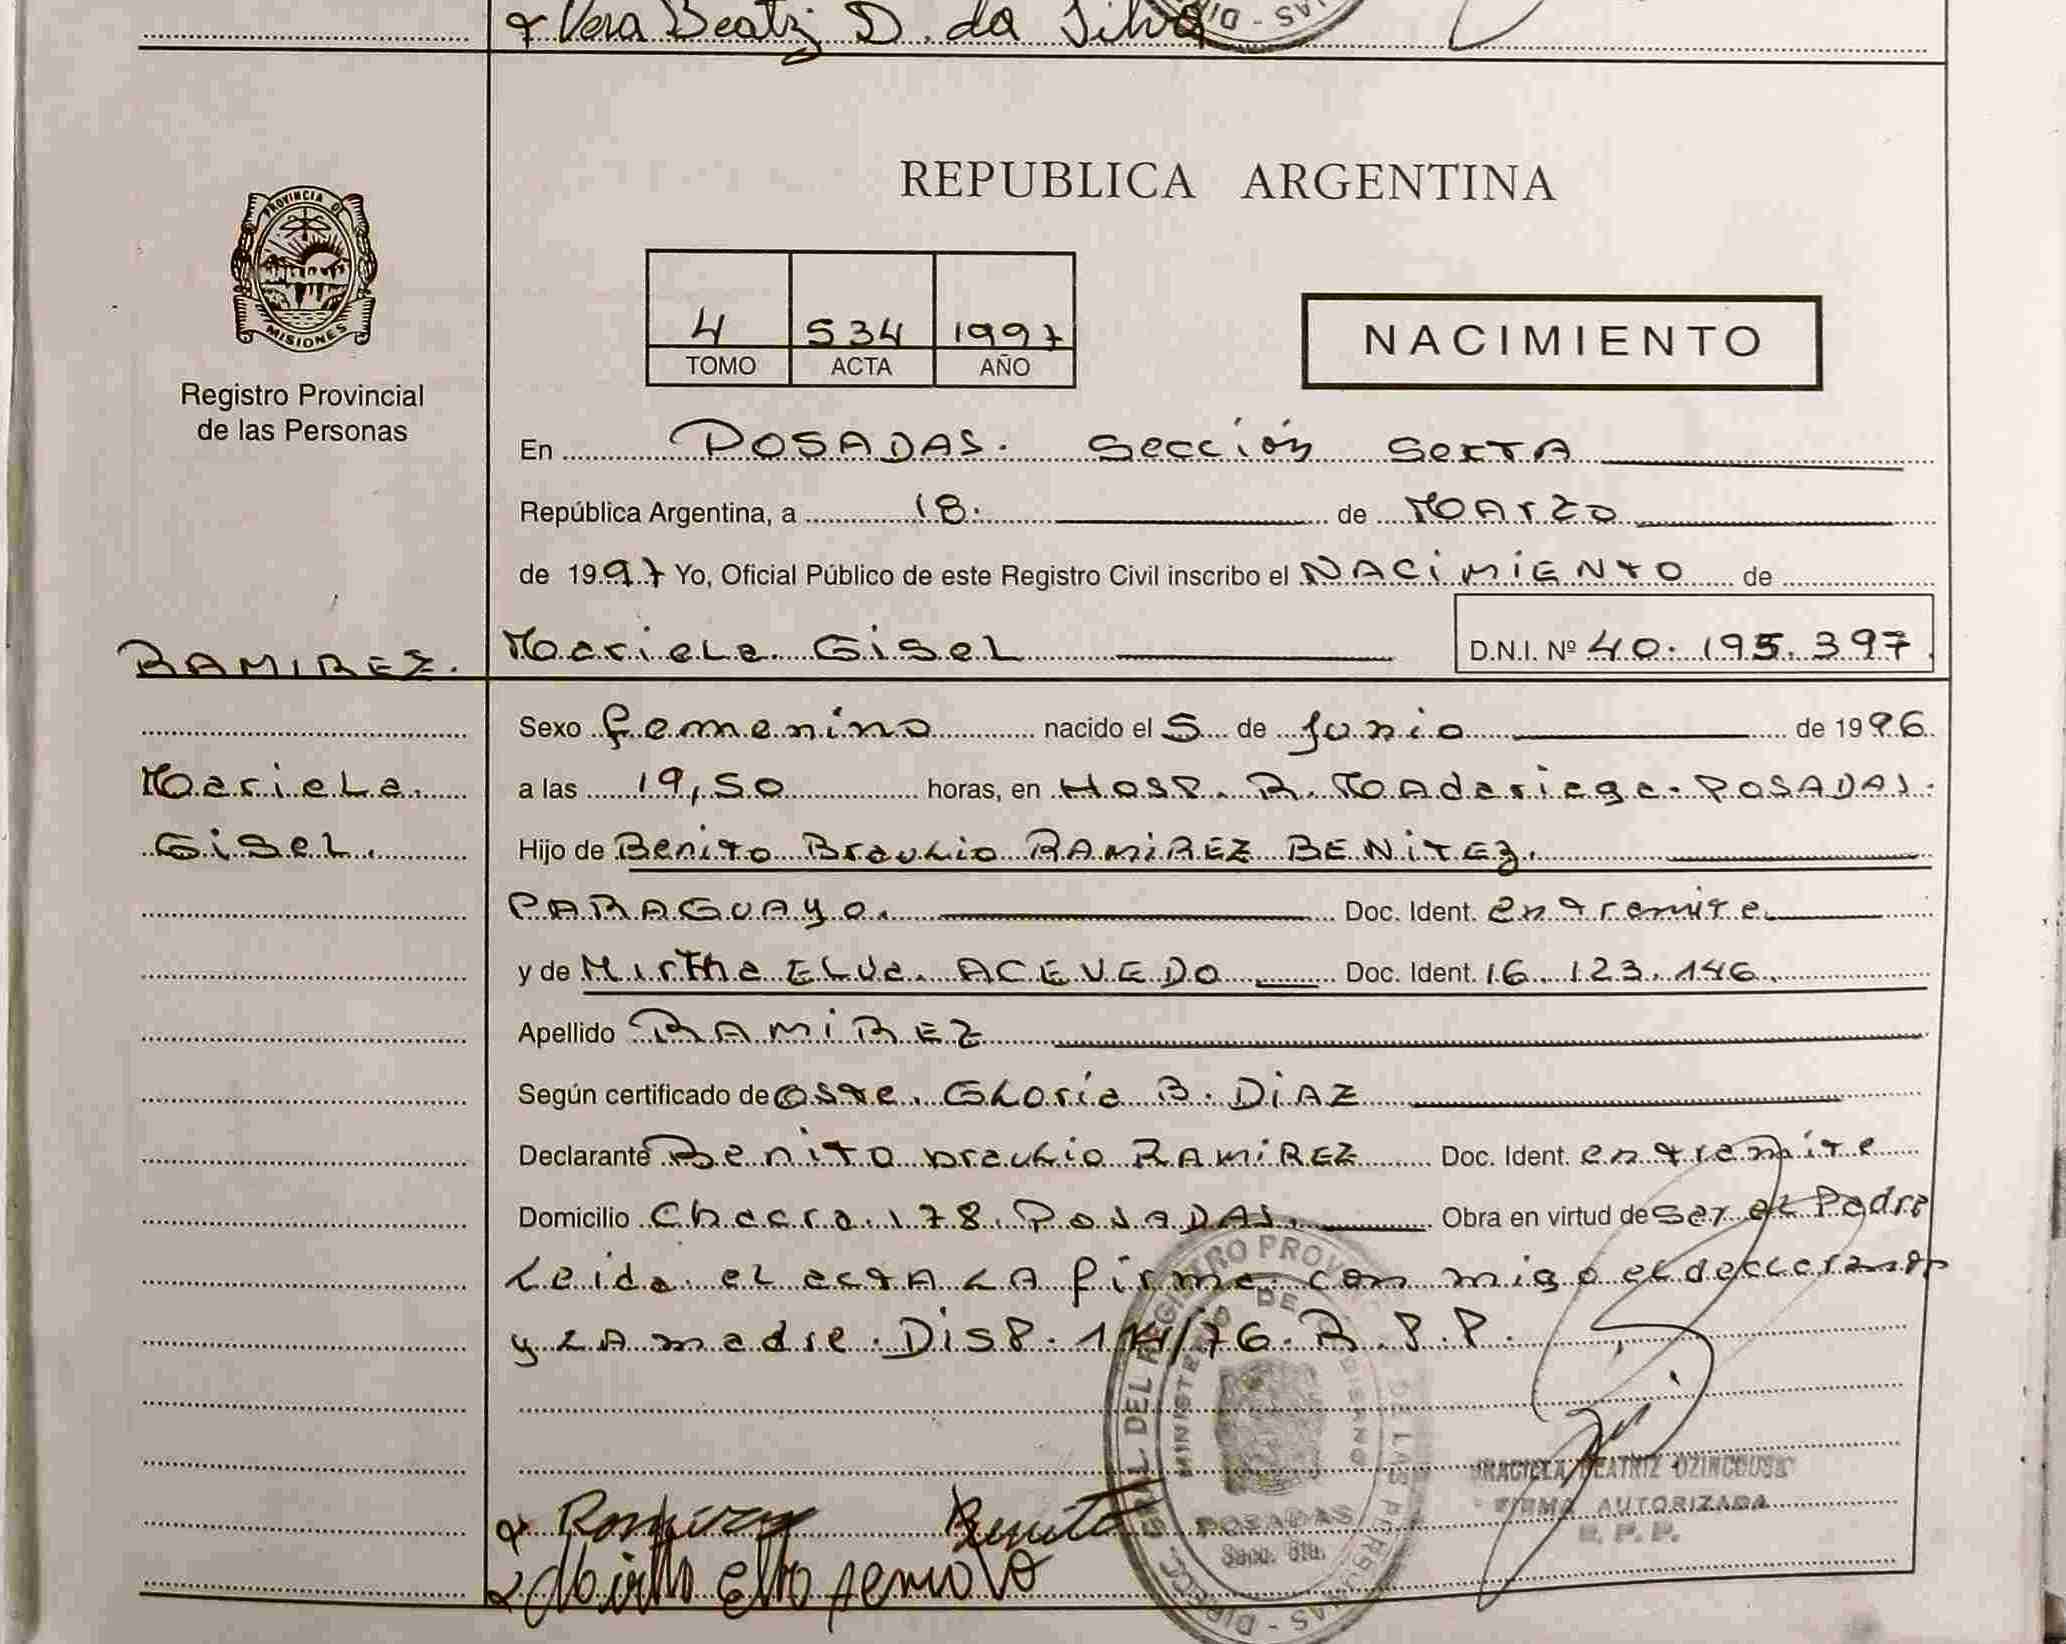 Vera Beatriz D. da Silva
PROVINCIA DE
MISIONES
Registro Provincial
de las Personas
REPUBLICA ARGENTINA
4 534 1997
TOMO ACTA AÑO
NACIMIENTO
En POSADAS. Sección Sexta
República Argentina, a 18. de Marzo
de 1997 Yo, Oficial Público de este Registro Civil inscribo el NACIMIENTO de
RAMIREZ. Mariela Gisel D.N.I. Nº 40.195.397
Sexo femenino nacido el 5 de Junio de 1996
Mariela a las 19,50 horas, en Hosp. R. Madariaga. POSADAS.
Gisel. Hijo de Benito Braulio RAMIREZ BENITEZ.
PARAGUAYO. Doc. Ident. en tramite.
y de Mirtha Elva ACEVEDO Doc. Ident. 16.123.146.
Apellido RAMIREZ
Según certificado de Oste. Gloria B. DIAZ
Declarante Benito Braulio RAMIREZ Doc. Ident. en tramite
Domicilio Chacra 178. POSADAS. Obra en virtud de ser el Padre
Leida el acta LA firma con migo el declarante
y LA madre. Disp. /76. R.P.P.
DIRECC. GRAL DEL REGISTRO PROV DE LAS PERSONAS
MINISTERIO DE
POSADAS
Secc. 6ta.
BEATRIZ
FIRMA AUTORIZADA
R.P.P.
Ramirez Benito